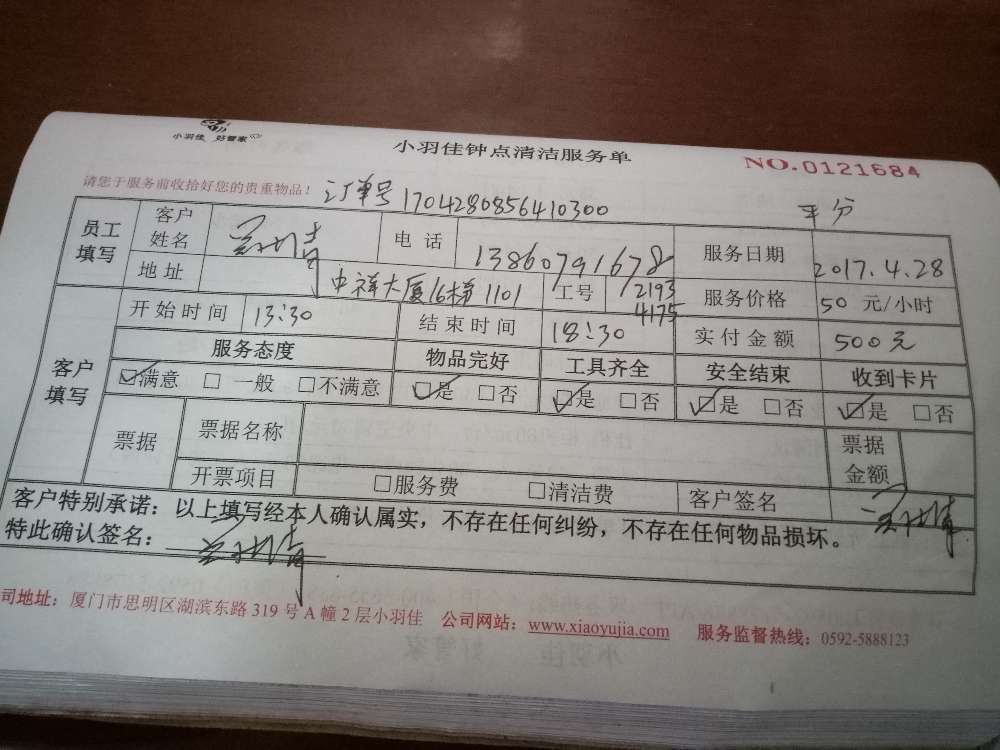 小羽佳 好管家
小羽佳钟点清洁服务单
NO.0121684
请您于服务前收拾好您的贵重物品！ 订单号 1704280856410300 平分
员工填写 客户姓名 电话 13860791678 服务日期 2017.4.28
地址 中祥大厦16梯1101 工号 2193 4175 服务价格 50 元/小时
客户填写 开始时间 13:30 结束时间 18:30 实付金额 500元
服务态度 物品完好 工具齐全 安全结束 收到卡片
☑满意 □ 一般 □不满意 ☑是 □否 ☑是 □否 ☑是 □否 ☑是 □否
票据 票据名称 票据金额
开票项目 □服务费 □清洁费 客户签名
客户特别承诺：以上填写经本人确认属实，不存在任何纠纷，不存在任何物品损坏。
特此确认签名：
司地址：厦门市思明区湖滨东路 319 号 A 幢 2 层小羽佳 公司网站：www.xiaoyujia.com 服务监督热线：0592-5888123